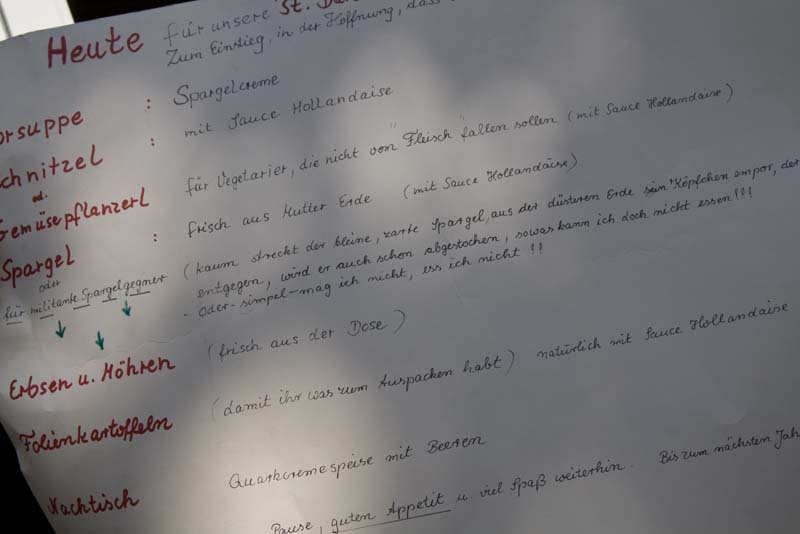 Heute für unsere St.
Zum Einstieg, in der Hoffnung, dass
orsuppe : Spargelcreme
chnitzel : mit Sauce Hollandaise
od.
Gemüsepflanzerl für Vegetarier, die nicht vom "Fleisch" fallen sollen (mit Sauce Hollandaise)
Spargel : frisch aus Mutter Erde (mit Sauce Hollandaise)
oder
für militante Spargelgegner (kaum streckt der kleine, zarte Spargel, aus der düsteren Erde sein Köpfchen empor, der
entgegen, wird er auch schon abgestochen, sowas kann ich doch nicht essen!!!
- oder - simpel - mag ich nicht, ess ich nicht !!
Erbsen u. Möhren (frisch aus der Dose)
Folienkartoffeln (damit ihr was zum Auspacken habt) natürlich mit Sauce Hollandaise
Nachtisch Quarkcremespeise mit Beeren
Pause, guten Appetit u. viel Spaß weiterhin. Bis zum nächsten Jah